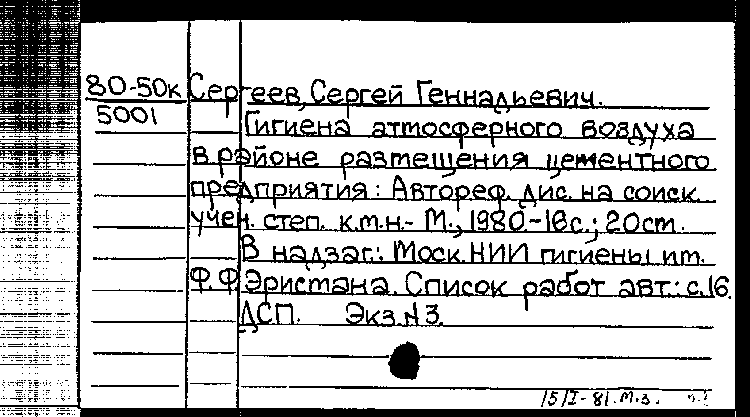 80-50к Сергеев, Сергей Геннадьевич.
5001 Гигиена атмосферного воздуха
в районе размещения цементного
предприятия: Автореф. дис. на соиск.
учен. степ. к.т.н.- М., 1980-16с.; 20см.
В надзаг.: Моск. НИИ гигиены им.
Ф.Ф Эристана. Список работ авт.: с.16.
ДСП. Экз.№3.
15/I-81. М.з.